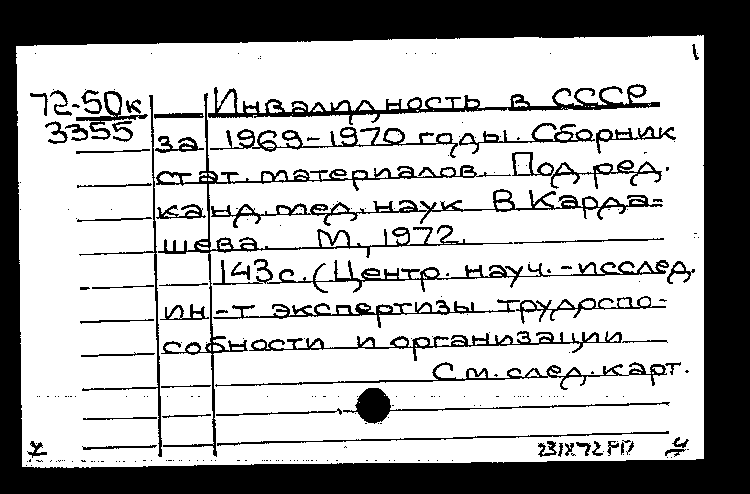 1
72-50к Инвалидность в СССР
3355 за 1969-1970 годы. Сборник
стат. материалов. Под ред.
канд. мед. наук В Карда=
шева. М., 1972.
143 с. (Центр. науч.-исслед.
ин-т экспертизы трудоспо=
собности и организации
См. след. карт.
23IX72 РП